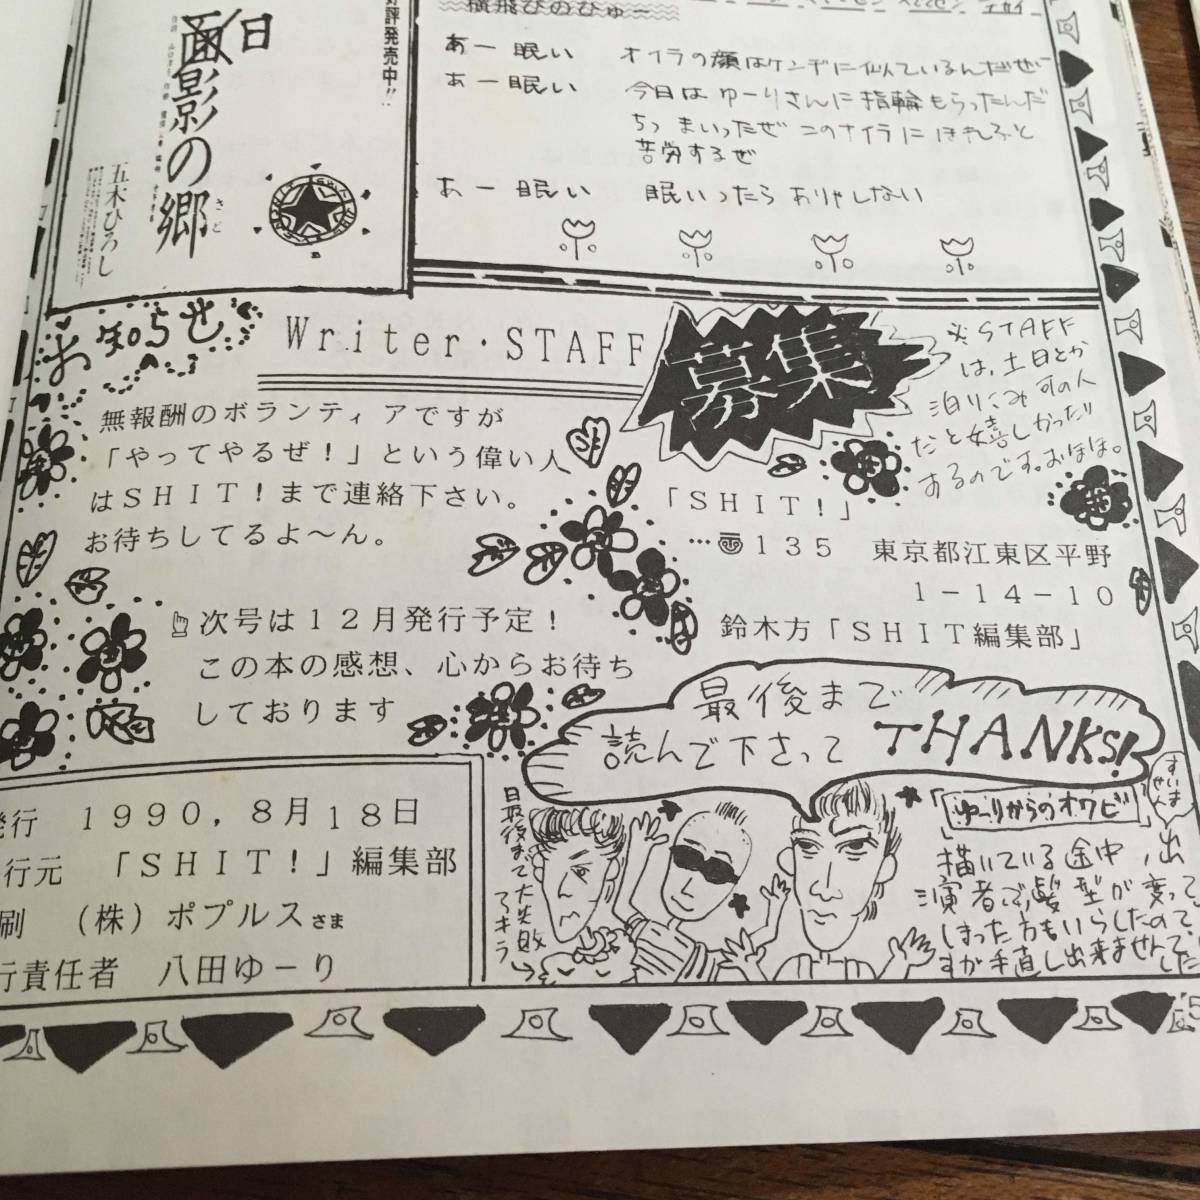 好評発売中!!
面影の郷
さと
五木ひろし
横飛びのひゅー
あー眠い オイラの顔はケンヂに似ているんだぜ
あー眠い 今日はゆーりさんに指輪もらったんだ
ちっ まいったぜ このオイラに
苦労するぜ
あー眠い 眠いったらありゃしない
お知らせ
Writer・STAFF
募集
※STAFF
は、土日とか
泊りこみ可の人
だと嬉しかったり
するのです。おほほ。
無報酬のボランティアですが
「やってやるぜ!」という偉い人
はSHIT!まで連絡下さい。
お待ちしてるよ〜ん。
「SHIT!」
…〠135 東京都江東区平野
1-14-10
鈴木方「SHIT編集部」
☝次号は12月発行予定!
この本の感想、心からお待ち
しております
最後まで
読んで下さって THANKS!
発行 1990,8月18日
行元 「SHIT!」編集部
刷 (株)ポプルスさま
行責任者 八田ゆーり
最後まで大失敗
アキラ
すいません
ゆーりからのオワビ
描いている途中、出
演者ぶ髪型が変って
しまった方もいらしたので
すが手直し出来ませんでした